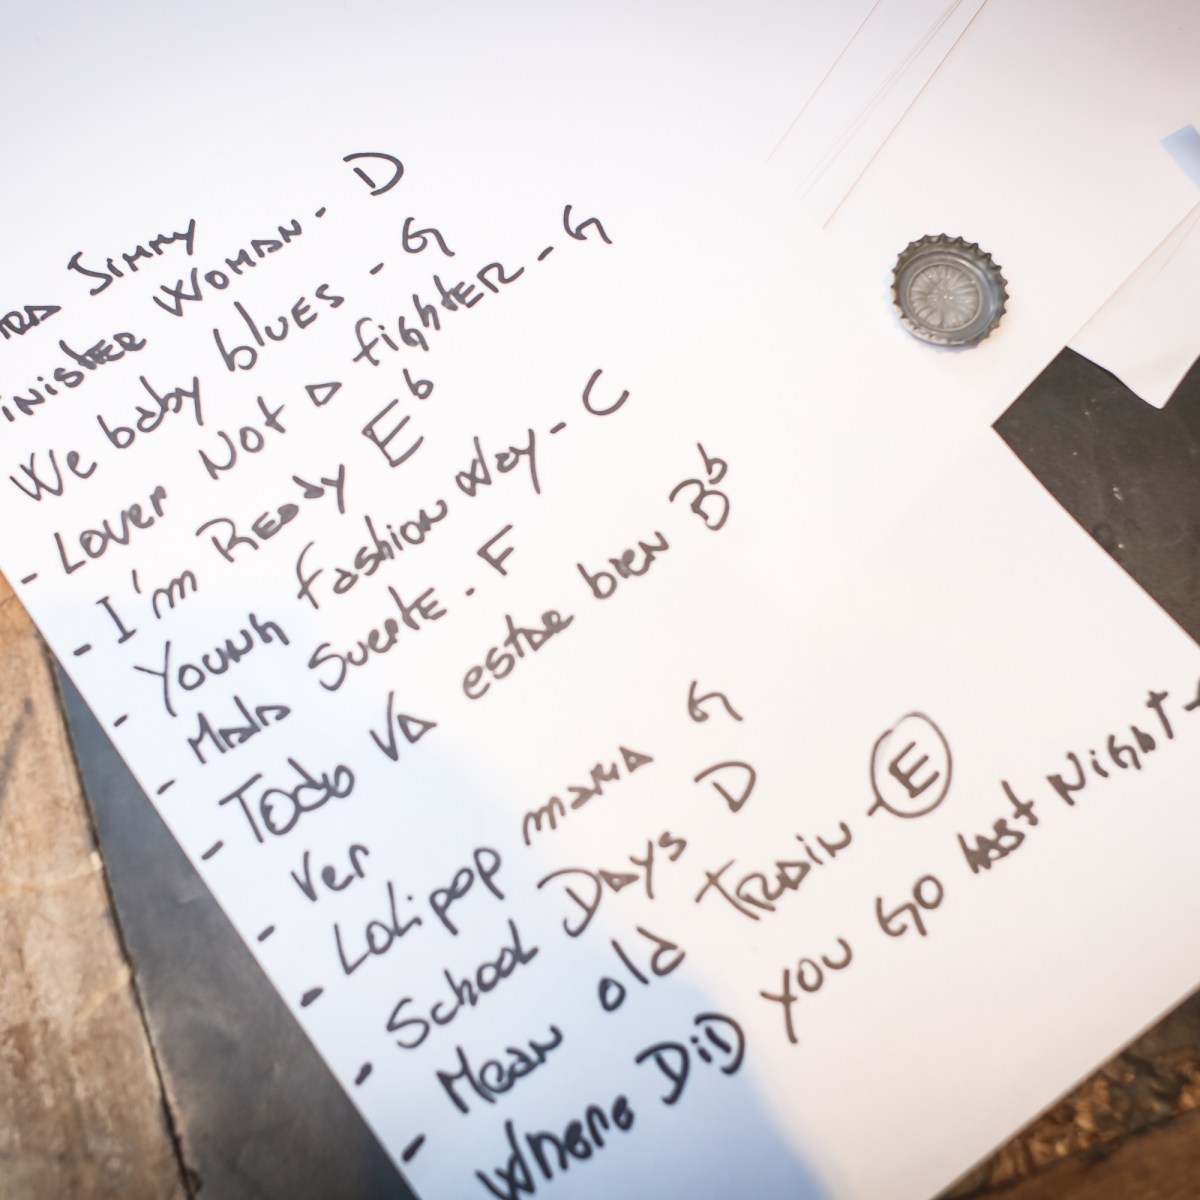 Jimmy
Woman - D
We baby blues - G
- Lover Not a fighter - G
- I'm Ready Eb
- Young fashion way - C
- Mala suerte - F
- Todo va estar bien Bb
- Ver
- Lolipop mama G
- School Days D
- Mean old Train - E
Where Did you Go last Night -